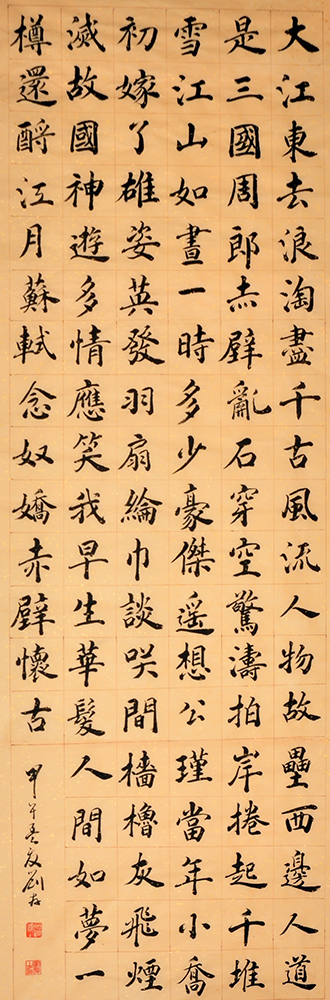 大江東去浪淘盡千古風流人物故壘西邊人道
是三國周郎赤壁亂石穿空驚濤拍岸捲起千堆
雪江山如畫一時多少豪傑遥想公瑾當年小喬
初嫁了雄姿英發羽扇綸巾談咲間檣櫓灰飛煙
滅故國神遊多情應笑我早生華髮人間如夢一
樽還酹江月蘇軾念奴嬌赤壁懷古
甲午